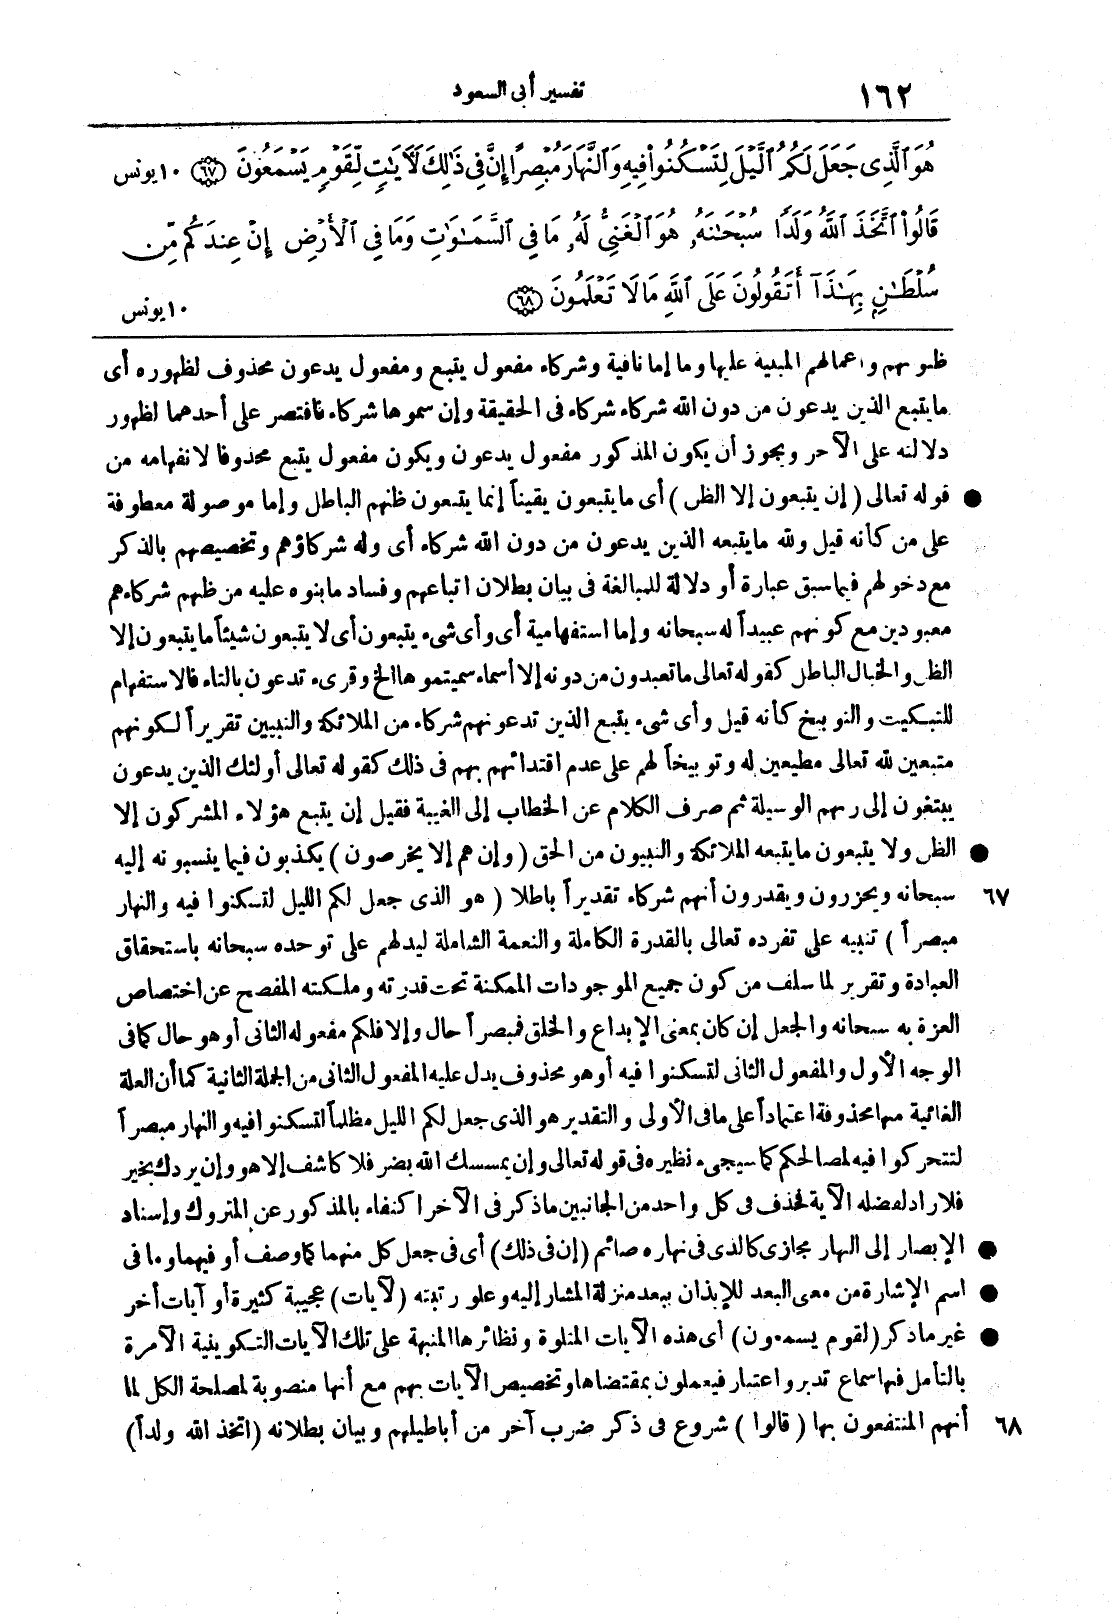 ١٦٢ تفسير أبى السعود
هُوَ ٱلَّذِى جَعَلَ لَكُمُ ٱلَّيْلَ لِتَسْكُنُوا۟ فِيهِ وَٱلنَّهَارَ مُبْصِرًا إِنَّ فِى ذَٰلِكَ لَءَايَٰتٍ لِّقَوْمٍ يَسْمَعُونَ ﴿٦٧﴾ ١٠ يونس
قَالُوا۟ ٱتَّخَذَ ٱللَّهُ وَلَدًا سُبْحَٰنَهُۥ هُوَ ٱلْغَنِىُّ لَهُۥ مَا فِى ٱلسَّمَٰوَٰتِ وَمَا فِى ٱلْأَرْضِ إِنْ عِندَكُم مِّن
سُلْطَٰنٍۭ بِهَٰذَآ أَتَقُولُونَ عَلَى ٱللَّهِ مَا لَا تَعْلَمُونَ ﴿٦٨﴾ ١٠ يونس
ظنونهم وأعمالهم المبنية عليها وما إما نافية وشركاء مفعول يتبع ومفعول يدعون محذوف لظهوره أى
ما يتبع الذين يدعون من دون الله شركاء شركاء فى الحقيقة وإن سموها شركاء فاقتصر على أحدهما لظهور
دلالته على الآخر ويجوز أن يكون المذكور مفعول يدعون ويكون مفعول يتبع محذوفا لانفهامه من
● قوله تعالى ( إن يتبعون إلا الظن ) أى ما يتبعون يقيناً إنما يتبعون ظنهم الباطل وإما موصولة معطوفة
على من كأنه قيل ولله ما يتبعه الذين يدعون من دون الله شركاء أى وله شركاؤهم وتخصيصهم بالذكر
مع دخولهم فيما سبق عبارة أو دلالة للمبالغة فى بيان بطلان اتباعهم وفساد ما بنوه عليه من ظنهم شركاءهم
معبودين مع كونهم عبيداً له سبحانه وإما استفهامية أى وأى شىء يتبعون أى لا يتبعون شيئاً ما يتبعون إلا
الظن والخيال الباطل كقوله تعالى ما تعبدون من دونه إلا أسماء سميتموها الخ وقرىء تدعون بالتاء فالاستفهام
للتبكيت والتوبيخ كأنه قيل وأى شىء يتبع الذين تدعونهم شركاء من الملائكة والنبيين تقريراً لكونهم
متبعين لله تعالى مطيعين له وتوبيخاً لهم على عدم اقتدائهم بهم فى ذلك كقوله تعالى أولئك الذين يدعون
يبتغون إلى ربهم الوسيلة ثم صرف الكلام عن الخطاب إلى الغيبة فقيل إن يتبع هؤلاء المشركون إلا
● الظن ولا يتبعون ما يتبعه الملائكة والنبيون من الحق ( وإن هم إلا يخرصون ) يكذبون فيما ينسبونه إليه
٦٧ سبحانه ويحزرون ويقدرون أنهم شركاء تقديراً باطلا ( هو الذى جعل لكم الليل لتسكنوا فيه والنهار
مبصراً ) تنبيه على تفرده تعالى بالقدرة الكاملة والنعمة الشاملة ليدلهم على توحده سبحانه باستحقاق
العبادة وتقرير لما سلف من كون جميع الموجودات الممكنة تحت قدرته وملكته المفصح عن اختصاص
العزة به سبحانه والجعل إن كان بمعنى الإبداع والخلق فمبصراً حال وإلا فلكم مفعوله الثانى أو هو حال كما فى
الوجه الأول والمفعول الثانى لتسكنوا فيه أو هو محذوف يدل عليه المفعول الثانى من الجملة الثانية كما أن العلة
الغائية منها محذوفة اعتماداً على ما فى الأولى والتقدير هو الذى جعل لكم الليل مظلماً لتسكنوا فيه والنهار مبصراً
لتتحركوا فيه لمصالحكم كما سيجىء نظيره فى قوله تعالى وإن يمسسك الله بضر فلا كاشف إلا هو وإن يردك بخير
فلا راد لفضله الآية فحذف فى كل واحد من الجانبين ما ذكر فى الآخر اكتفاء بالمذكور عن المتروك وإسناد
● الإبصار إلى النهار مجازى كالذى فى نهاره صائم (إن فى ذلك) أى فى جعل كل منهما كما وصف أو فيهما وما فى
● اسم الإشارة من معنى البعد للإيذان ببعد منزلة المشار إليه وعلو رتبته (لآيات) عجيبة كثيرة أو آيات أخر
● غير ما ذكر (لقوم يسمعون) أى هذه الآيات المتلوة ونظائرها المنبهة على تلك الآيات التكوينية الآمرة
بالتأمل فيها سماع تدبر واعتبار فيعملون بمقتضاها وتخصيص الآيات بهم مع أنها منصوبة لمصلحة الكل لما
٦٨ أنهم المنتفعون بها ( قالوا ) شروع فى ذكر ضرب آخر من أباطيلهم وبيان بطلانه (اتخذ الله ولداً)